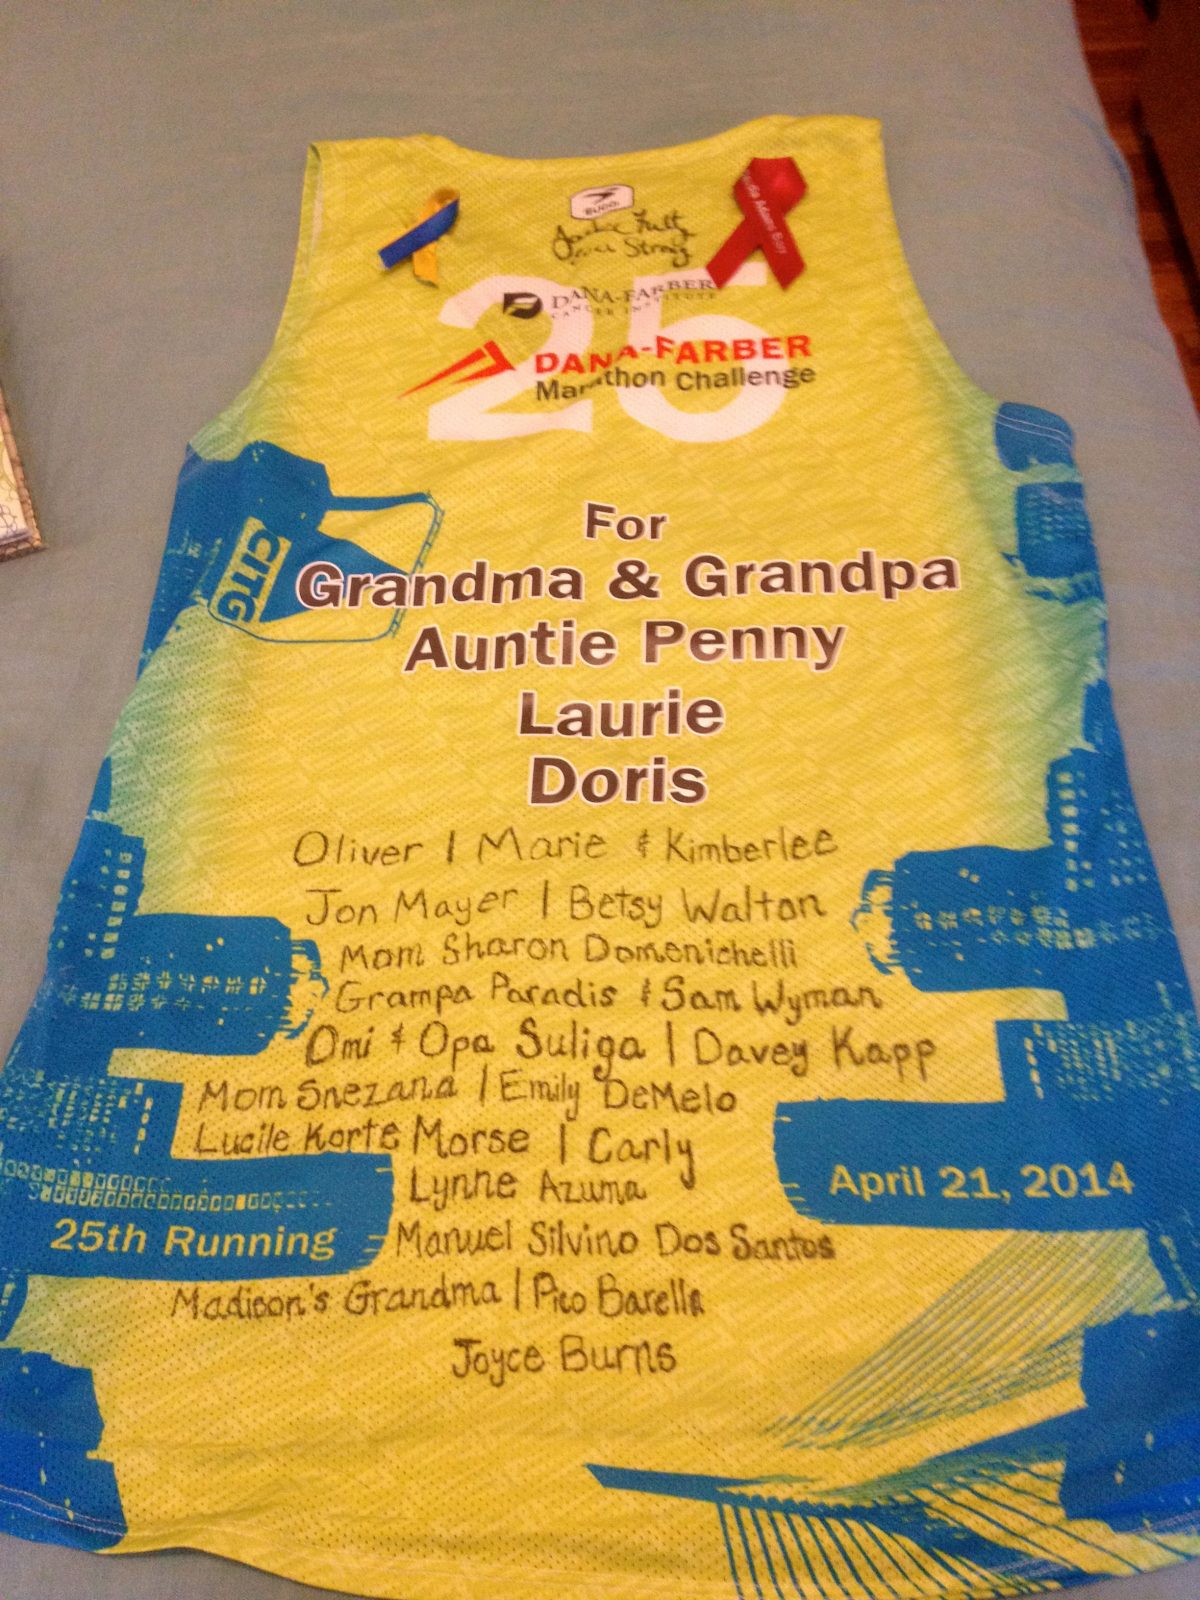 25
DANA-FARBER
CANCER INSTITUTE
DANA-FARBER
Marathon Challenge
CITG
For
Grandma & Grandpa
Auntie Penny
Laurie
Doris
Oliver | Marie & Kimberlee
Jon Mayer | Betsy Walton
Mom Sharon Domenichelli
Grampa Paradis & Sam Wyman
Omi & Opa Suliga | Davey Kapp
Mom Snezana | Emily DeMelo
Lucile Korte Morse | Carly
Lynne Azuma
April 21, 2014
25th Running
Manuel Silvino Dos Santos
Madison's Grandma | Pito Barella
Joyce Burns